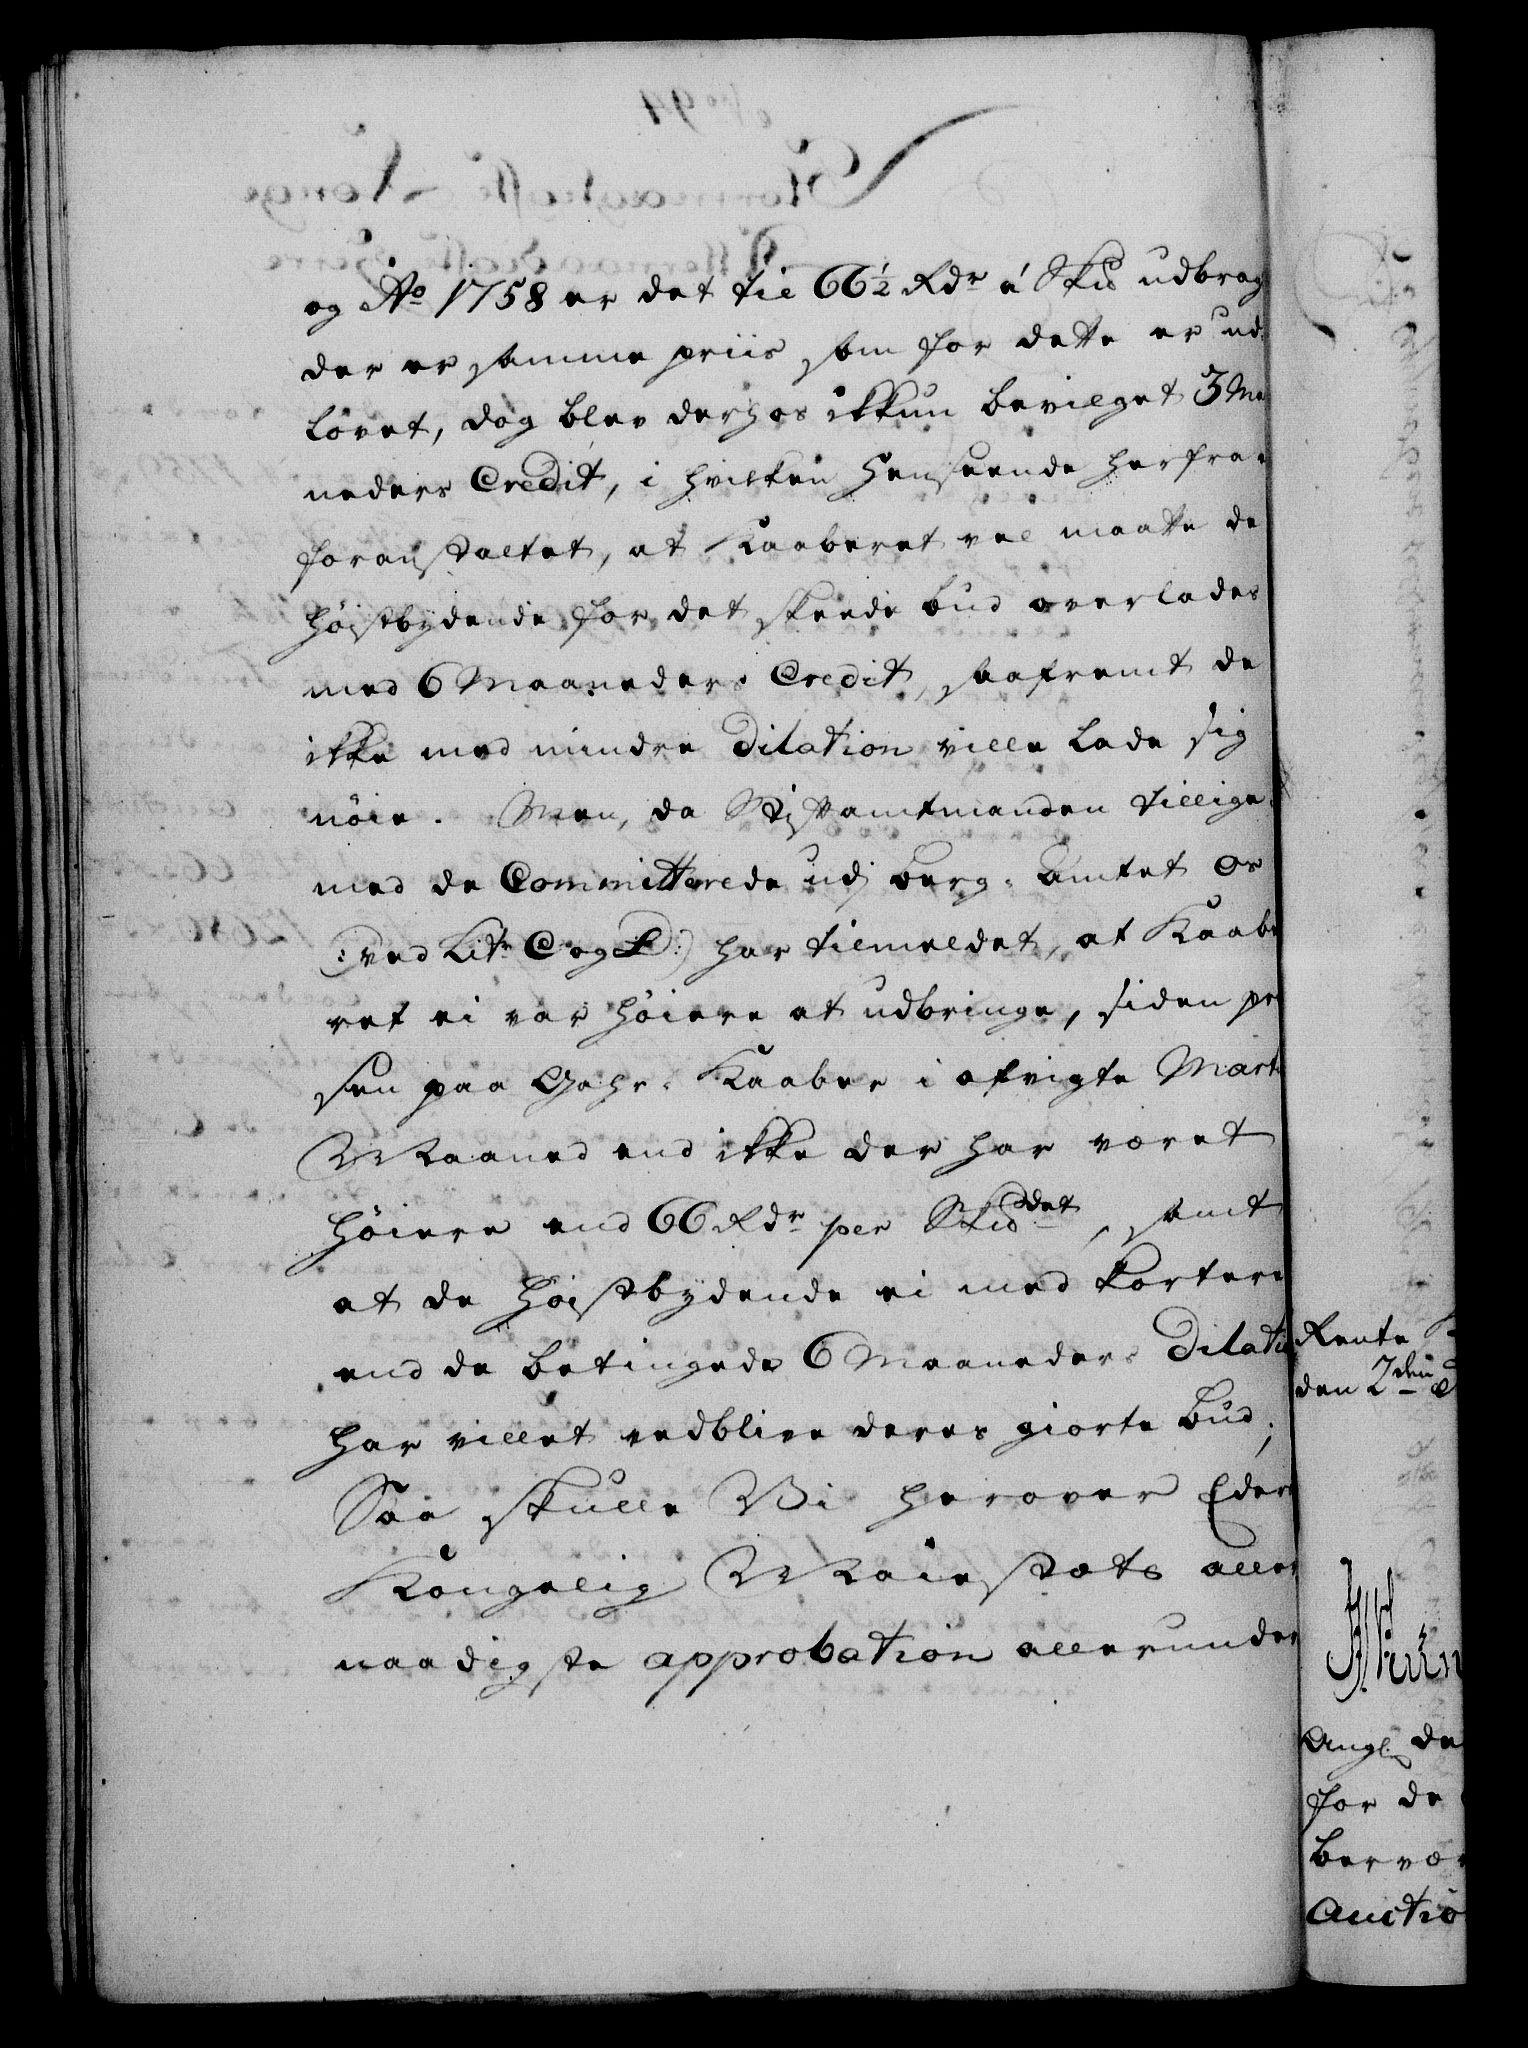 og Ao 1758 er det til 66½ Rdr á Skd udbrag
der er samme priis som for dette er ud¬
lovet, dog blev derhos ikkun bevilget 3 Ma
neders Credit, i hvilken Henseende herfra
foranstaltet, at Kaaberet vel maatte de
høistbydende for det skeede bud overlades
med 6 Maaneders Credit, saafremt de
ikke med mindre Dilation ville lade sig
nøie. Men, da Stiftamtmanden tillige¬
med de Committerede udj berg-Amtet os
/: ved Litr C og D :/ har tilmeldet, at Kaabe
ret ei var høiere at udbringe, siden pri
sen paa Gahr-Kaaber i afvigte Marti
Maaned end ikke der har været
høiere end 66 Rdr per Skddet, samt
at de høistbydende ei med kortere
end de betingede 6 Maaneders Dilatio
har villet vedblive deres giorte bud;
Saa skulle Vi herover Eders
Kongelig Maiestæts aller
naadigste approbation allerunder
Rente K
den 2den
Angl. de
for de
bervær
Auctio